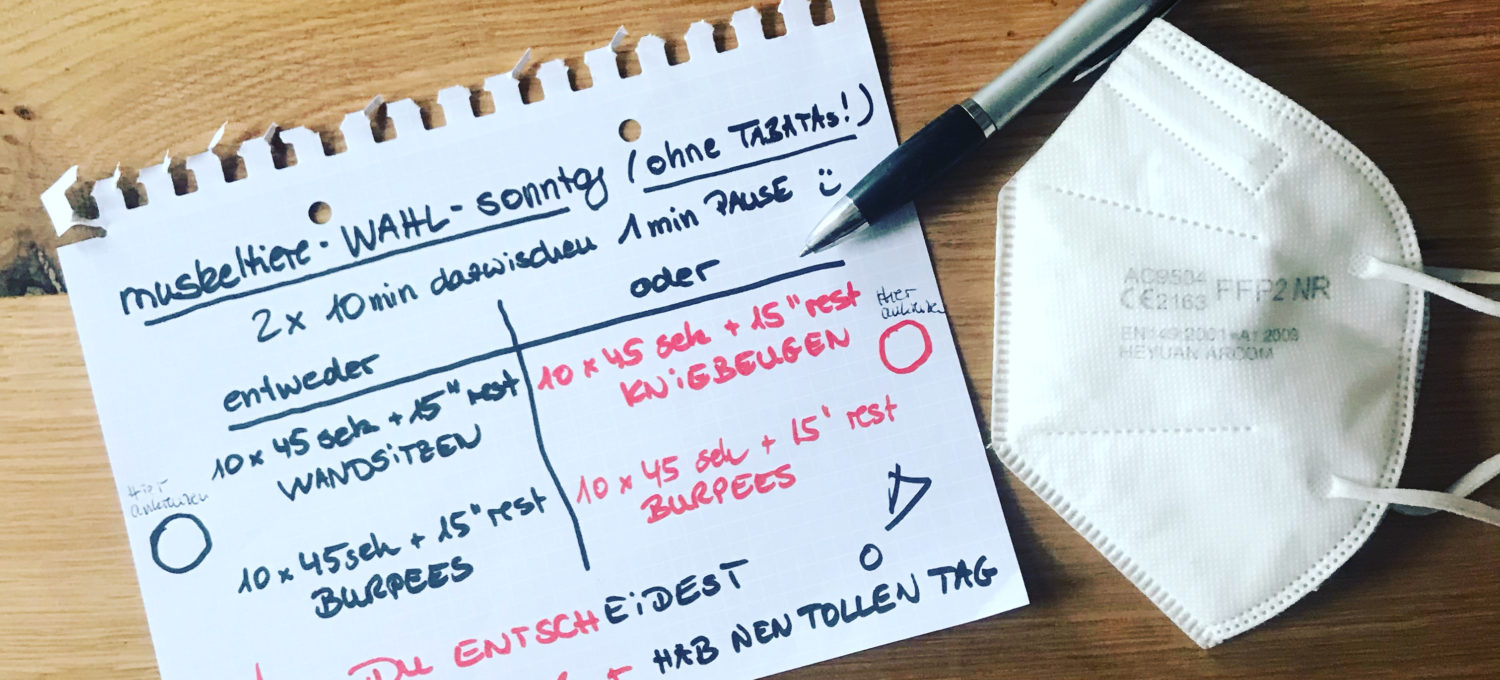 muskeltiere - WAHL - sonntag (ohne TABATAs!)
2 x 10 min dazwischen 1 min PAUSE
entweder
10 x 45 sek + 15" rest
WANDSiTZEN
10 x 45 sek + 15" rest
BURPEES
Hier
ankreuzen
oder
10 x 45 sek + 15" rest
KNiEBEUGEN
10 x 45 sek + 15' rest
BURPEES
Hier
ankreuzen
DU ENTSCHEiDEST
HAB NEN TOLLEN TAG
AC9504
CE2163 FFP2 NR
EN149:2001+A1:2009
HEYUAN AROOM